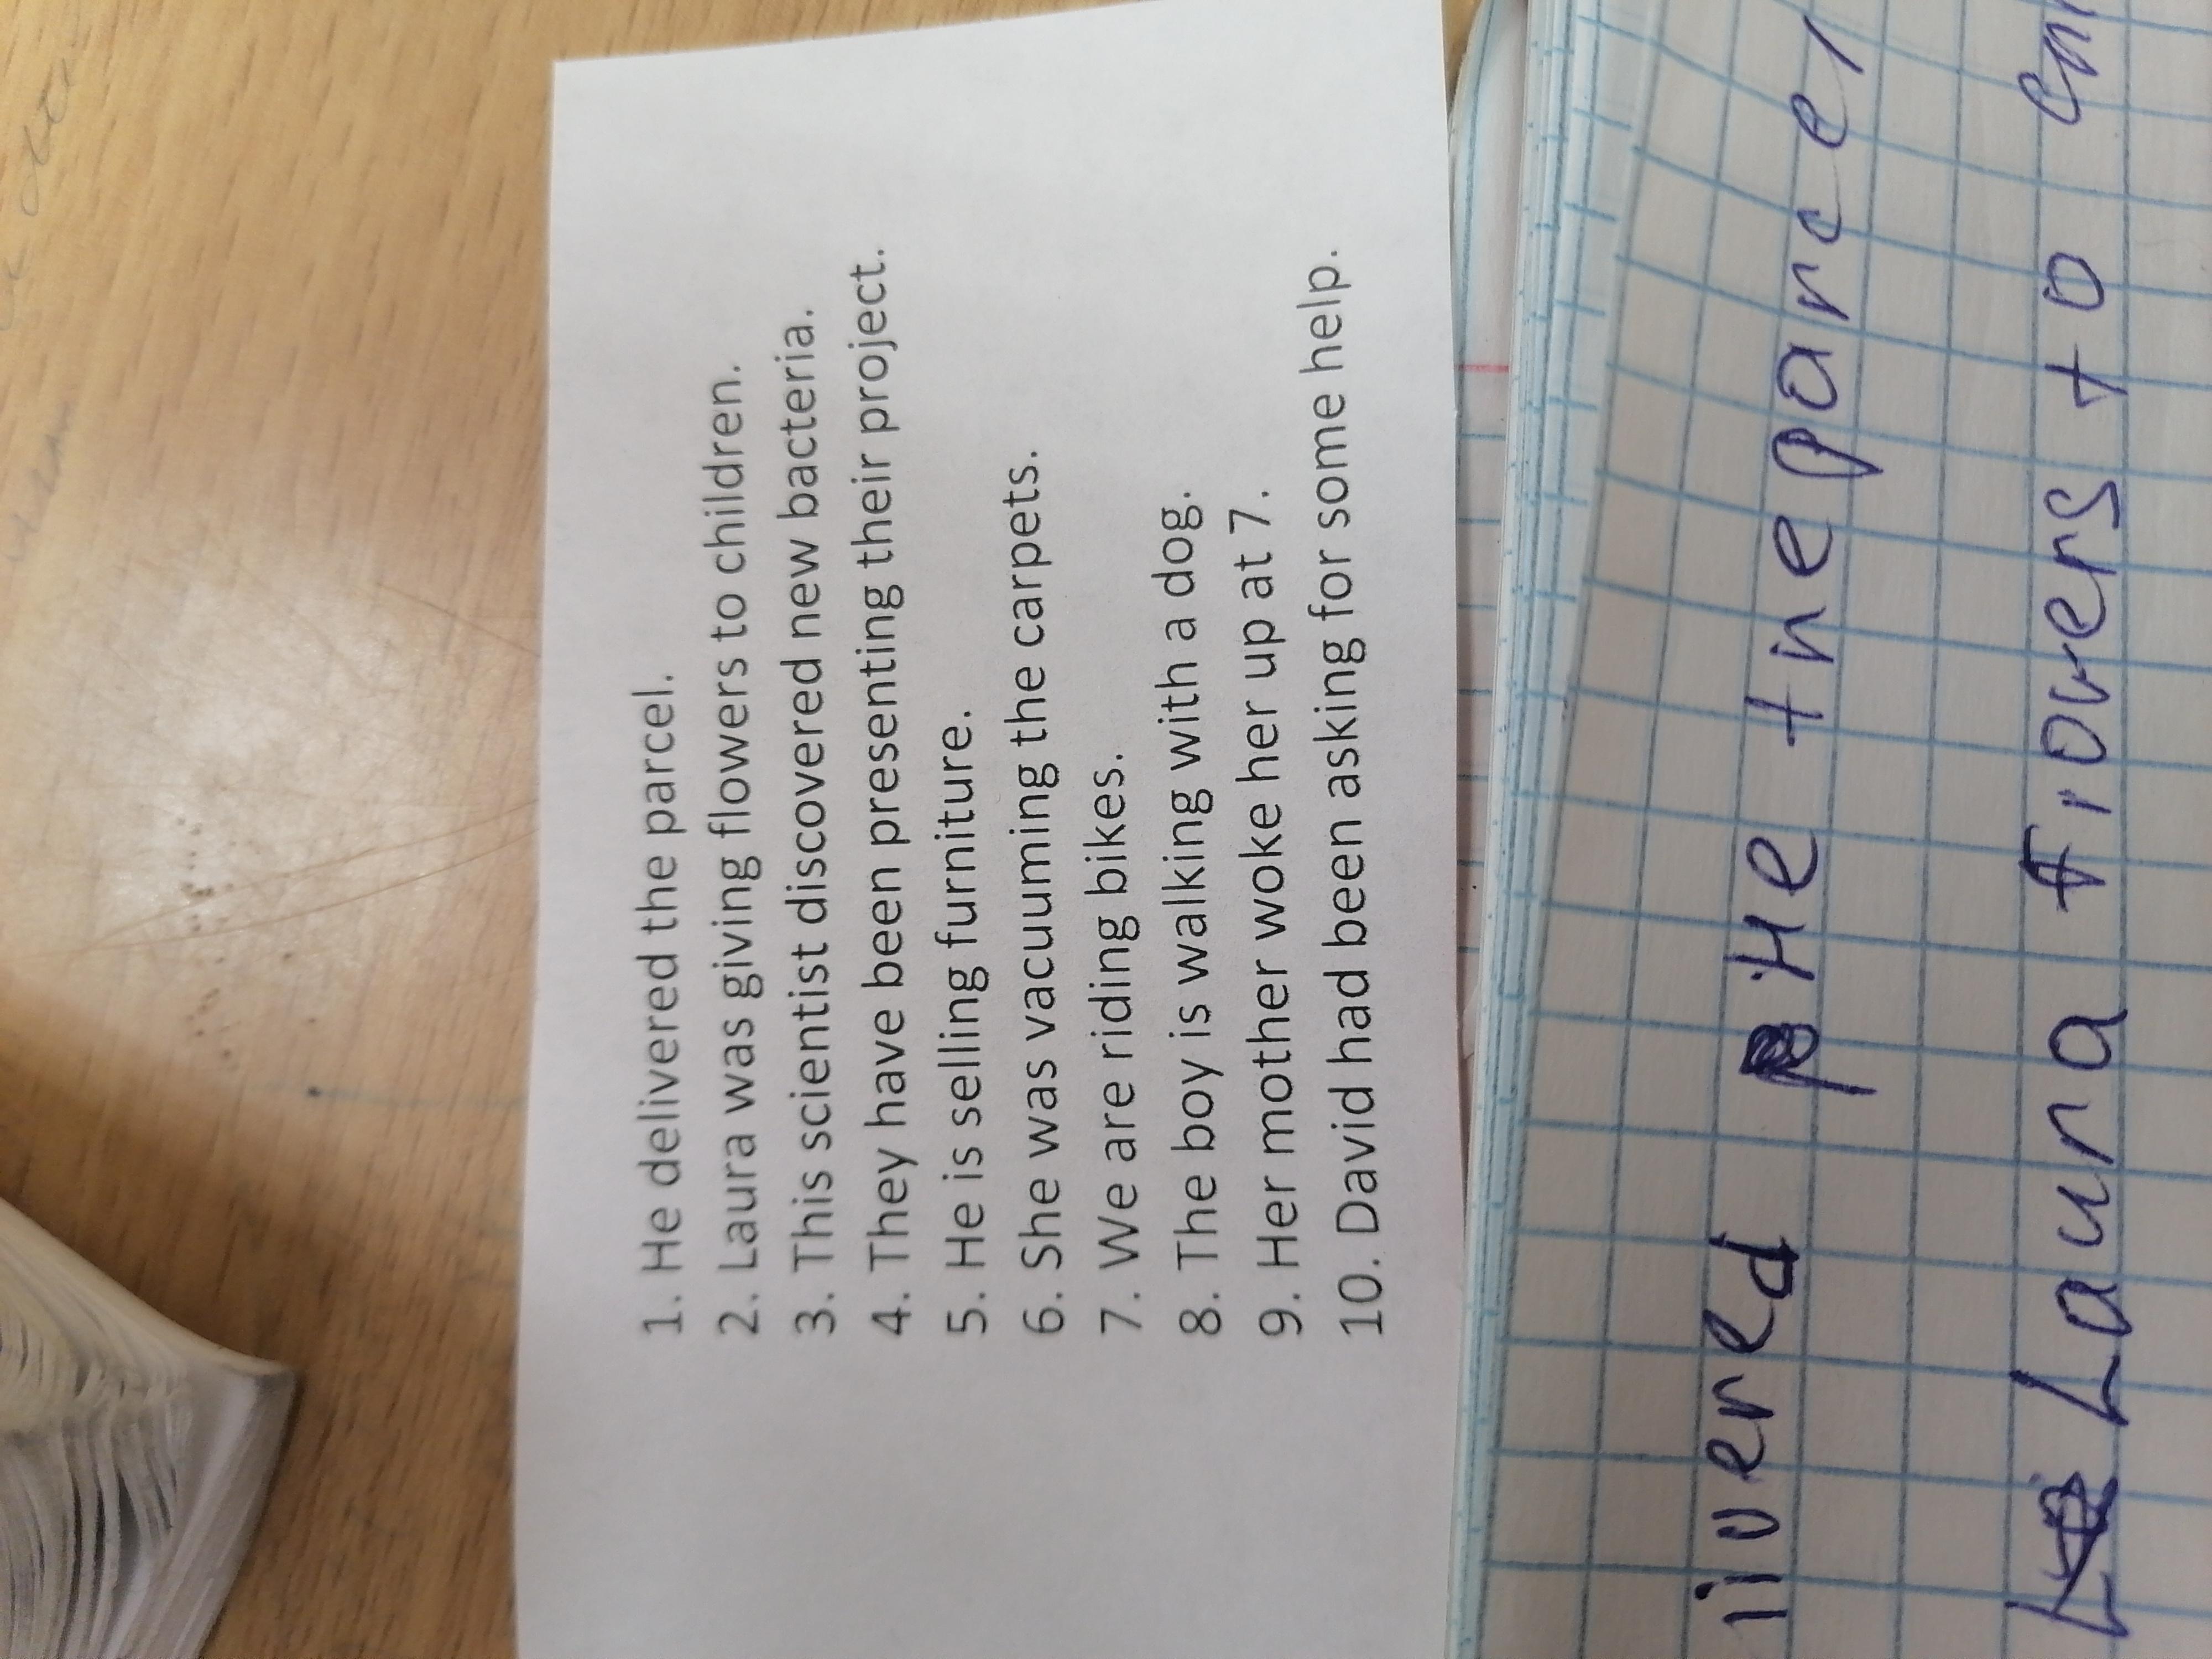 1. He delivered the parcel.
2. Laura was giving flowers to children.
3. This scientist discovered new bacteria.
4. They have been presenting their project.
5. He is selling furniture.
6. She was vacuuming the carpets.
7. We are riding bikes.
8. The boy is walking with a dog.
9. Her mother woke her up at 7.
10. David had been asking for some help.
ivered He the parcel
Laura flovers to